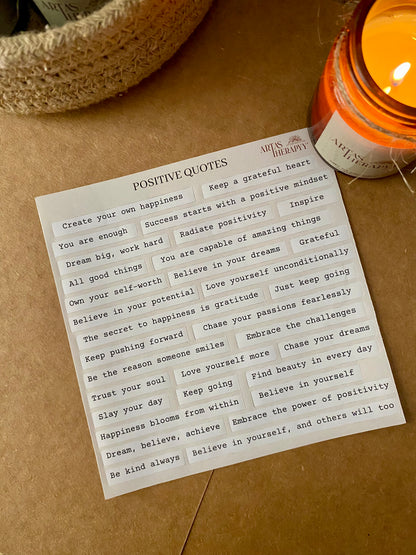 POSITIVE QUOTES
ARTAS THERAPYY
Create your own happiness
Keep a grateful heart
You are enough
Success starts with a positive mindset
Dream big, work hard
Radiate positivity
Inspire
All good things
You are capable of amazing things
Own your self-worth
Believe in your dreams
Grateful
Believe in your potential
Love yourself unconditionally
The secret to happiness is gratitude
Just keep going
Keep pushing forward
Chase your passions fearlessly
Be the reason someone smiles
Embrace the challenges
Trust your soul
Love yourself more
Chase your dreams
Slay your day
Keep going
Find beauty in every day
Happiness blooms from within
Believe in yourself
Dream, believe, achieve
Embrace the power of positivity
Be kind always
Believe in yourself, and others will too